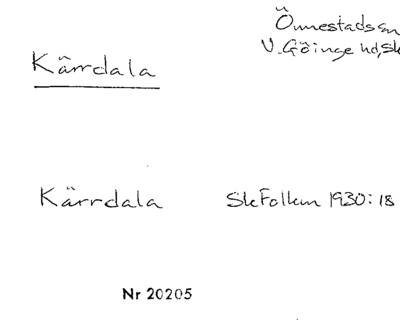 Önnestads sn
V. Göinge hd, Sk
Kärrdala
Kärrdala SkFolkm 1930:18
Nr 20205